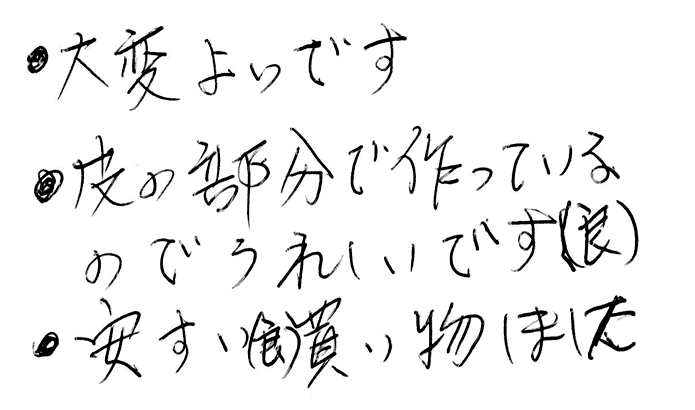 ●大変よいです
●皮の部分で作っている
のでうれしいです(良)
●安すい(良)買い物しました